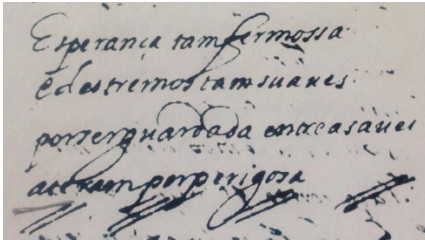 Esperança tam fermossa
e destremos tam suaves
por ser guardada entre as aves
a teram por perigosa